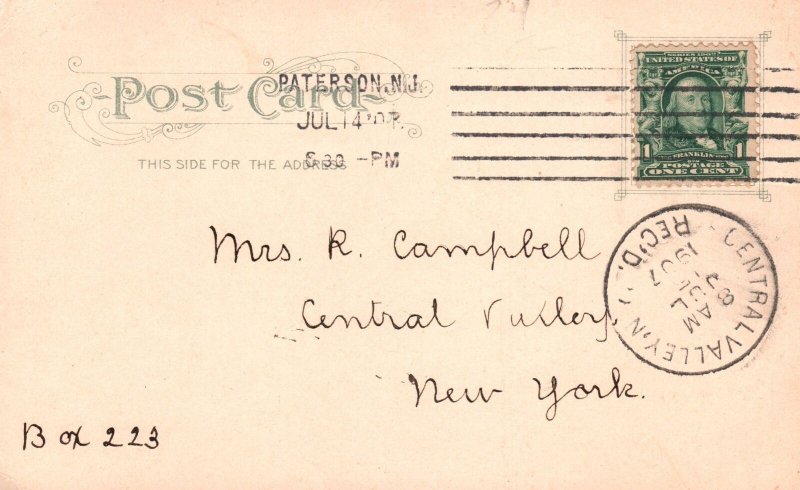 Post Card
PATERSON, N.J.
JUL 14
8 30 -PM
THIS SIDE FOR THE ADDRESS
SERIES 1902
UNITED STATES OF
AMERICA
FRANKLIN
1 POSTAGE 1
ONE CENT
CENTRAL VALLEY, N.Y.
REC'D.
1907
JUL
8 AM
Mrs. R. Campbell
Central Valley,
New York.
Box 223